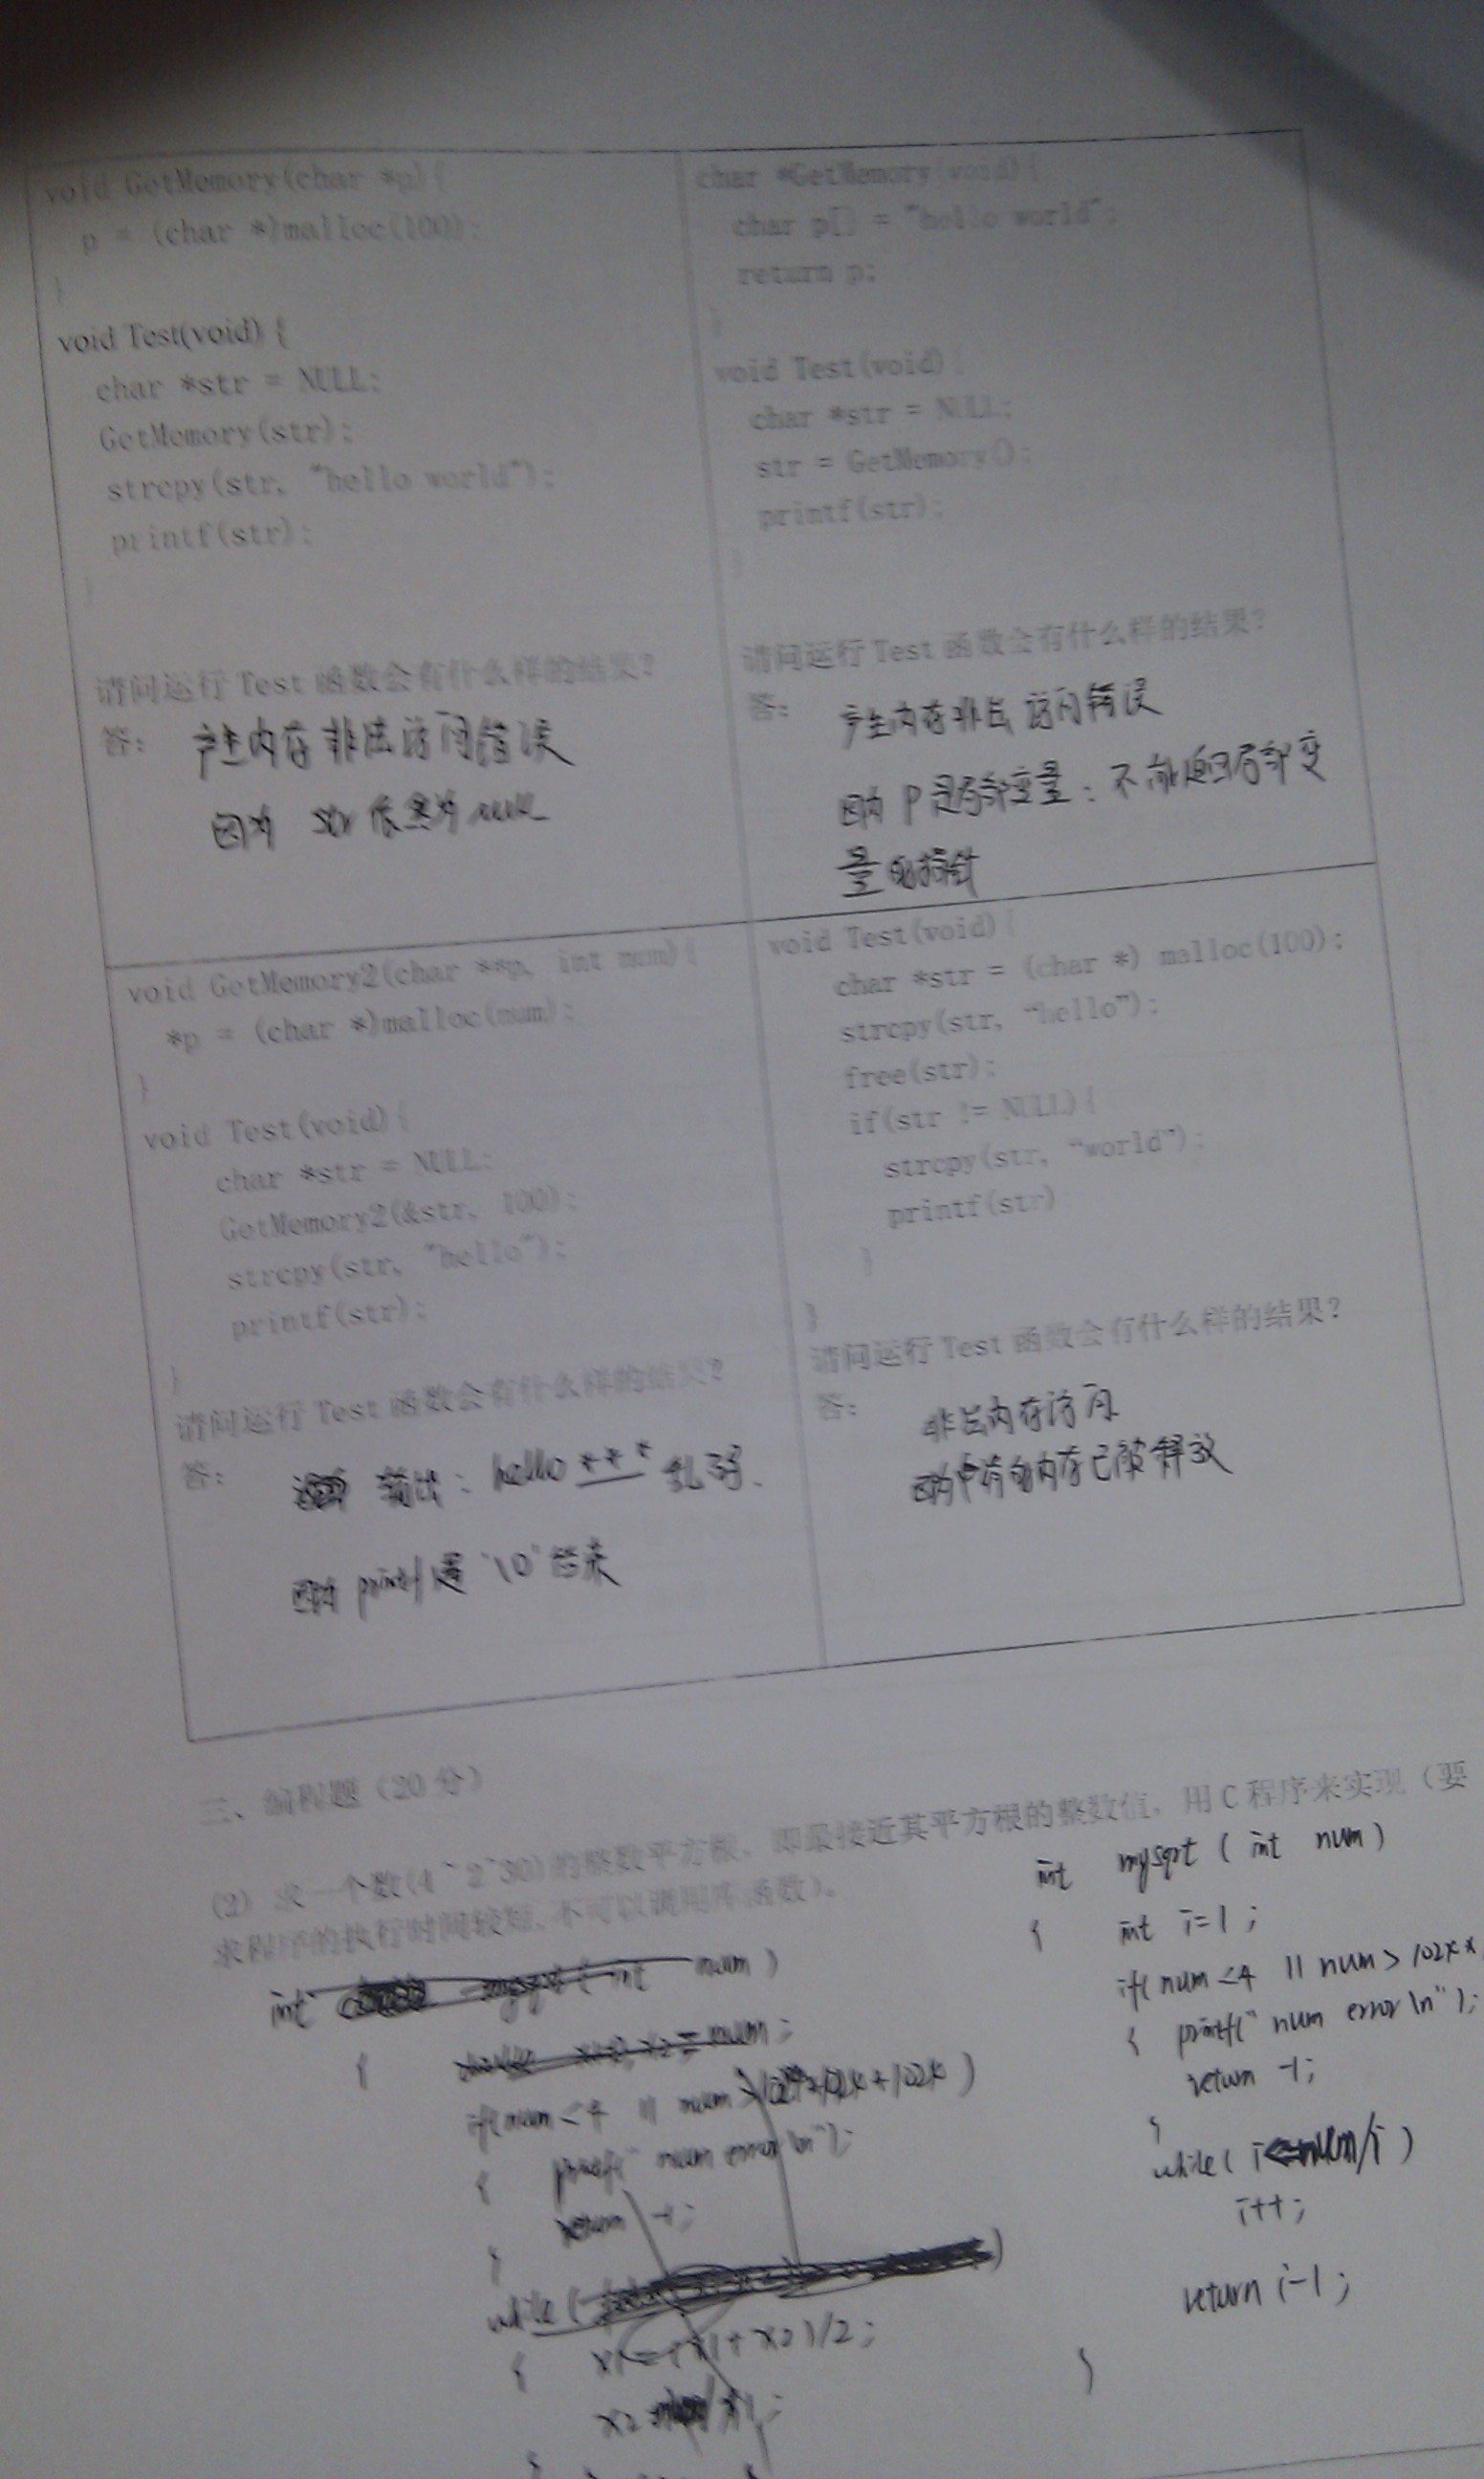 void GetMemory(char *p){
p = (char *)malloc(100);
}
void Test(void) {
char *str = NULL;
GetMemory(str);
strcpy(str, "hello world");
printf(str);
}
请问运行 Test 函数会有什么样的结果?
答: 产生内存非法访问错误
因为 str 依然为 NULL
char *GetMemory(void){
char p[] = "hello world";
return p;
}
void Test(void){
char *str = NULL;
str = GetMemory();
printf(str);
}
请问运行 Test 函数会有什么样的结果?
答: 产生内存非法访问错误
因为 p 是局部变量: 不能返回局部变
量的指针
void GetMemory2(char **p, int num){
*p = (char *)malloc(num);
}
void Test(void){
char *str = NULL;
GetMemory2(&str, 100);
strcpy(str, "hello");
printf(str);
}
请问运行 Test 函数会有什么样的结果?
答: 输出: hello *** 乱码.
因为 printf 遇 '\0' 结束
void Test(void){
char *str = (char *) malloc(100);
strcpy(str, "hello");
free(str);
if(str != NULL){
strcpy(str, "world");
printf(str)
}
}
请问运行 Test 函数会有什么样的结果?
答: 非法内存访问
内存已被释放
三、编程题 (20 分)
(2) 求一个数(4~2^30)的整数平方根, 即最接近其平方根的整数值, 用 C 程序来实现 (要
求程序的执行时间较短, 不可以调用库函数)。
int mysqrt ( int num )
{
if( num < 4 || num >
{ printf(" num error \n");
return -1;
}
while (
{ x1 = (x1 + x2)/2;
x2
int mysqrt ( int num )
{ int i=1 ;
if( num <4 || num >
{ printf(" num error \n" );
return -1;
}
while( i<=num/i )
i++;
return i-1 ;
}